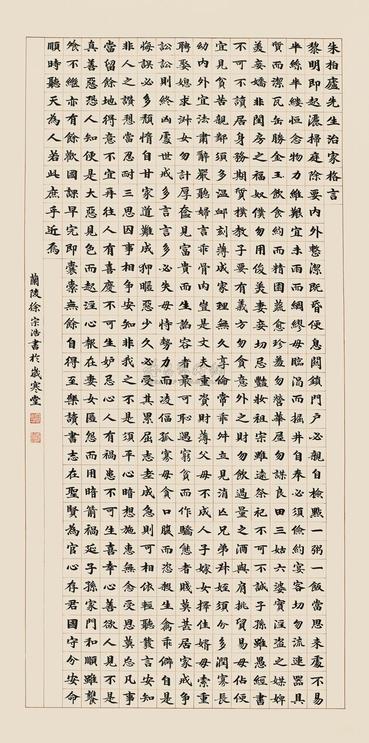 朱柏廬先生治家格言
黎明即起灑掃庭除要內外整潔既昏便息關鎖門戶必親自檢點一粥一飯當思來處不易
半絲半縷恒念物力維艱宜未雨而綢繆毋臨渴而掘井自奉必須儉約宴客切勿流連器具
質而潔瓦缶勝金玉飲食約而精園蔬愈珍羞勿營華屋勿謀良田三姑六婆實淫盜之媒婢
美妾嬌非閨房之福奴僕勿用俊美妻妾切忌豔妝祖宗雖遠祭祀不可不誠子孫雖愚經書
不可不讀居身務期質樸教子要有義方勿貪意外之財勿飲過量之酒與肩挑貿易毋佔便
宜見貧苦親鄰須多溫卹刻薄成家理無久享倫常乖舛立見消亡兄弟叔姪須分多潤寡長
幼內外宜法肅辭嚴聽婦言乖骨肉豈是丈夫重資財薄父母不成人子嫁女擇佳婿毋索重
聘娶媳求淑女勿計厚奩見富貴而生諂容者最可恥遇貧窮而作驕態者賤莫甚居家戒爭
訟訟則終凶處世戒多言言多必失毋恃勢力而凌偪孤寡毋貪口腹而恣殺生禽乖僻自是
悔誤必多頹惰自甘家道難成狎暱惡少久必受其累屈志老成急則可相依輕聽發言安知
非人之譖愬當忍耐三思因事相爭安知非我之不是須平心暗想施惠無念受恩莫忘凡事
當留餘地得意不宜再往人有喜慶不可生妒忌心人有禍患不可生喜幸心善欲人見不是
真善惡恐人知便是大惡見色而起淫心報在妻女匿怨而用暗箭禍延子孫家門和順雖饔
飧不繼亦有餘歡國課早完即囊橐無餘自得至樂讀書志在聖賢為官心存君國守分安命
順時聽天為人若此庶乎近焉
蘭陵徐宗浩書於歲寒堂